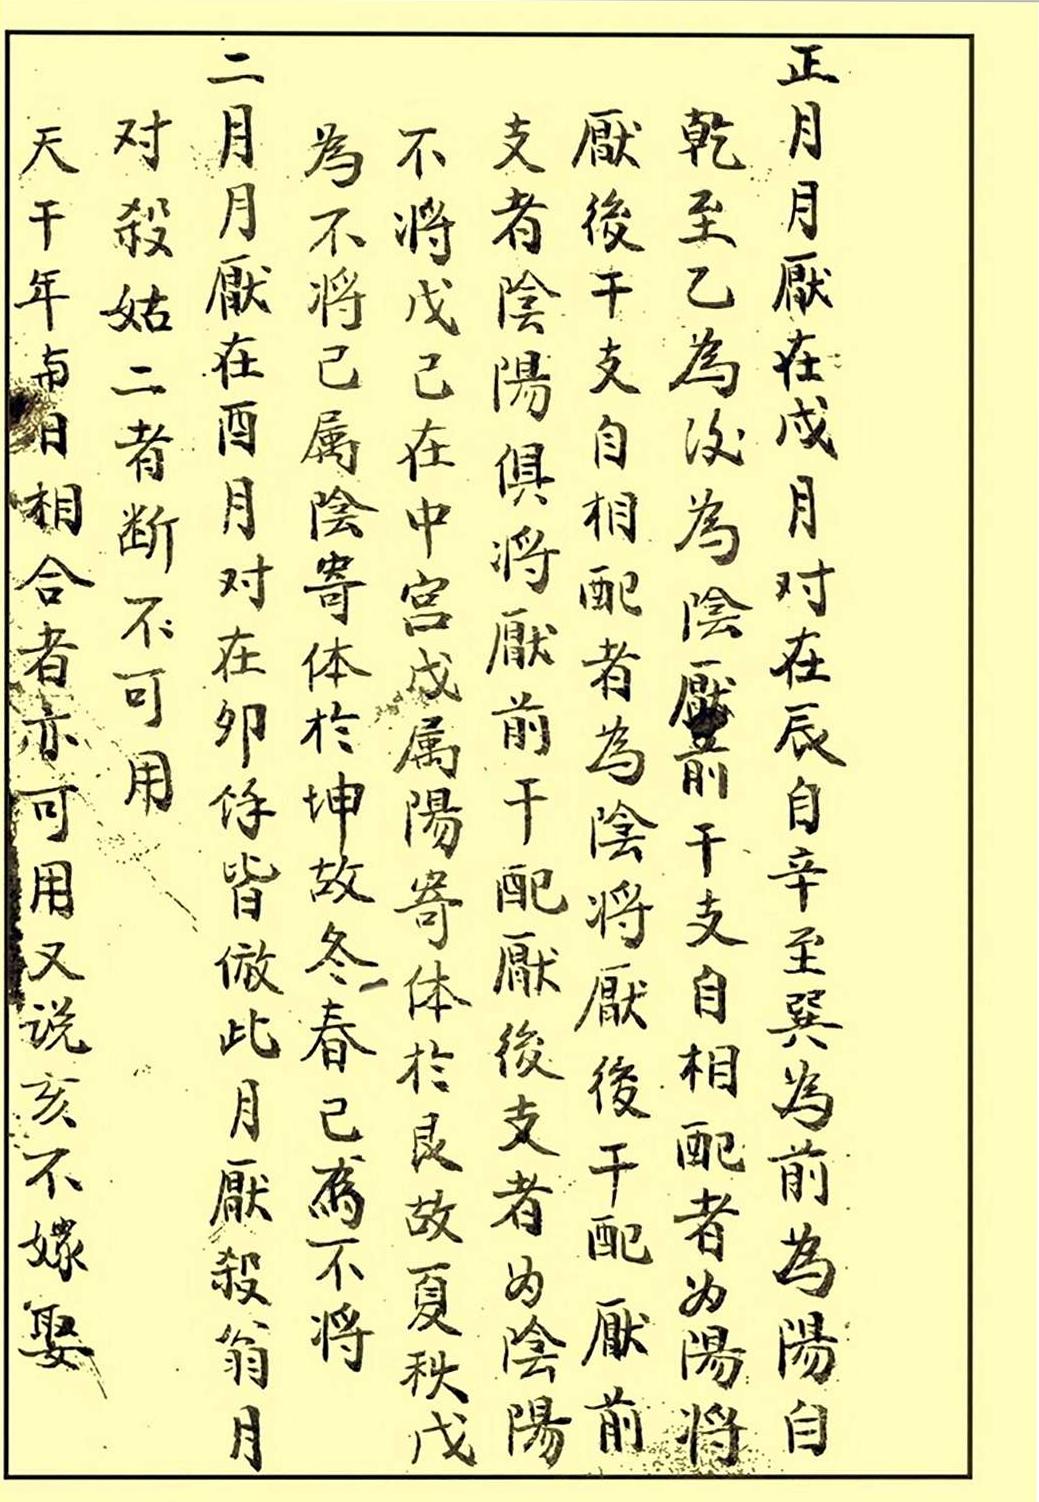 正月月厭在戍月对在辰自辛至巽為前為陽自
乾至乙為後為陰厭前干支自相配者为陽將
厭後干支自相配者為陰将厭後干配厭前
支者陰陽俱将厭前干配厭後支者为陰陽
不将戊己在中宫戊属陽寄体於艮故夏秋戊
為不将己属陰寄体於坤故冬春己為不将
二月月厭在酉月对在卯馀皆倣此月厭殺翁月
对殺姑二者断不可用
天干年与日相合者亦可用又说亥不嫁娶